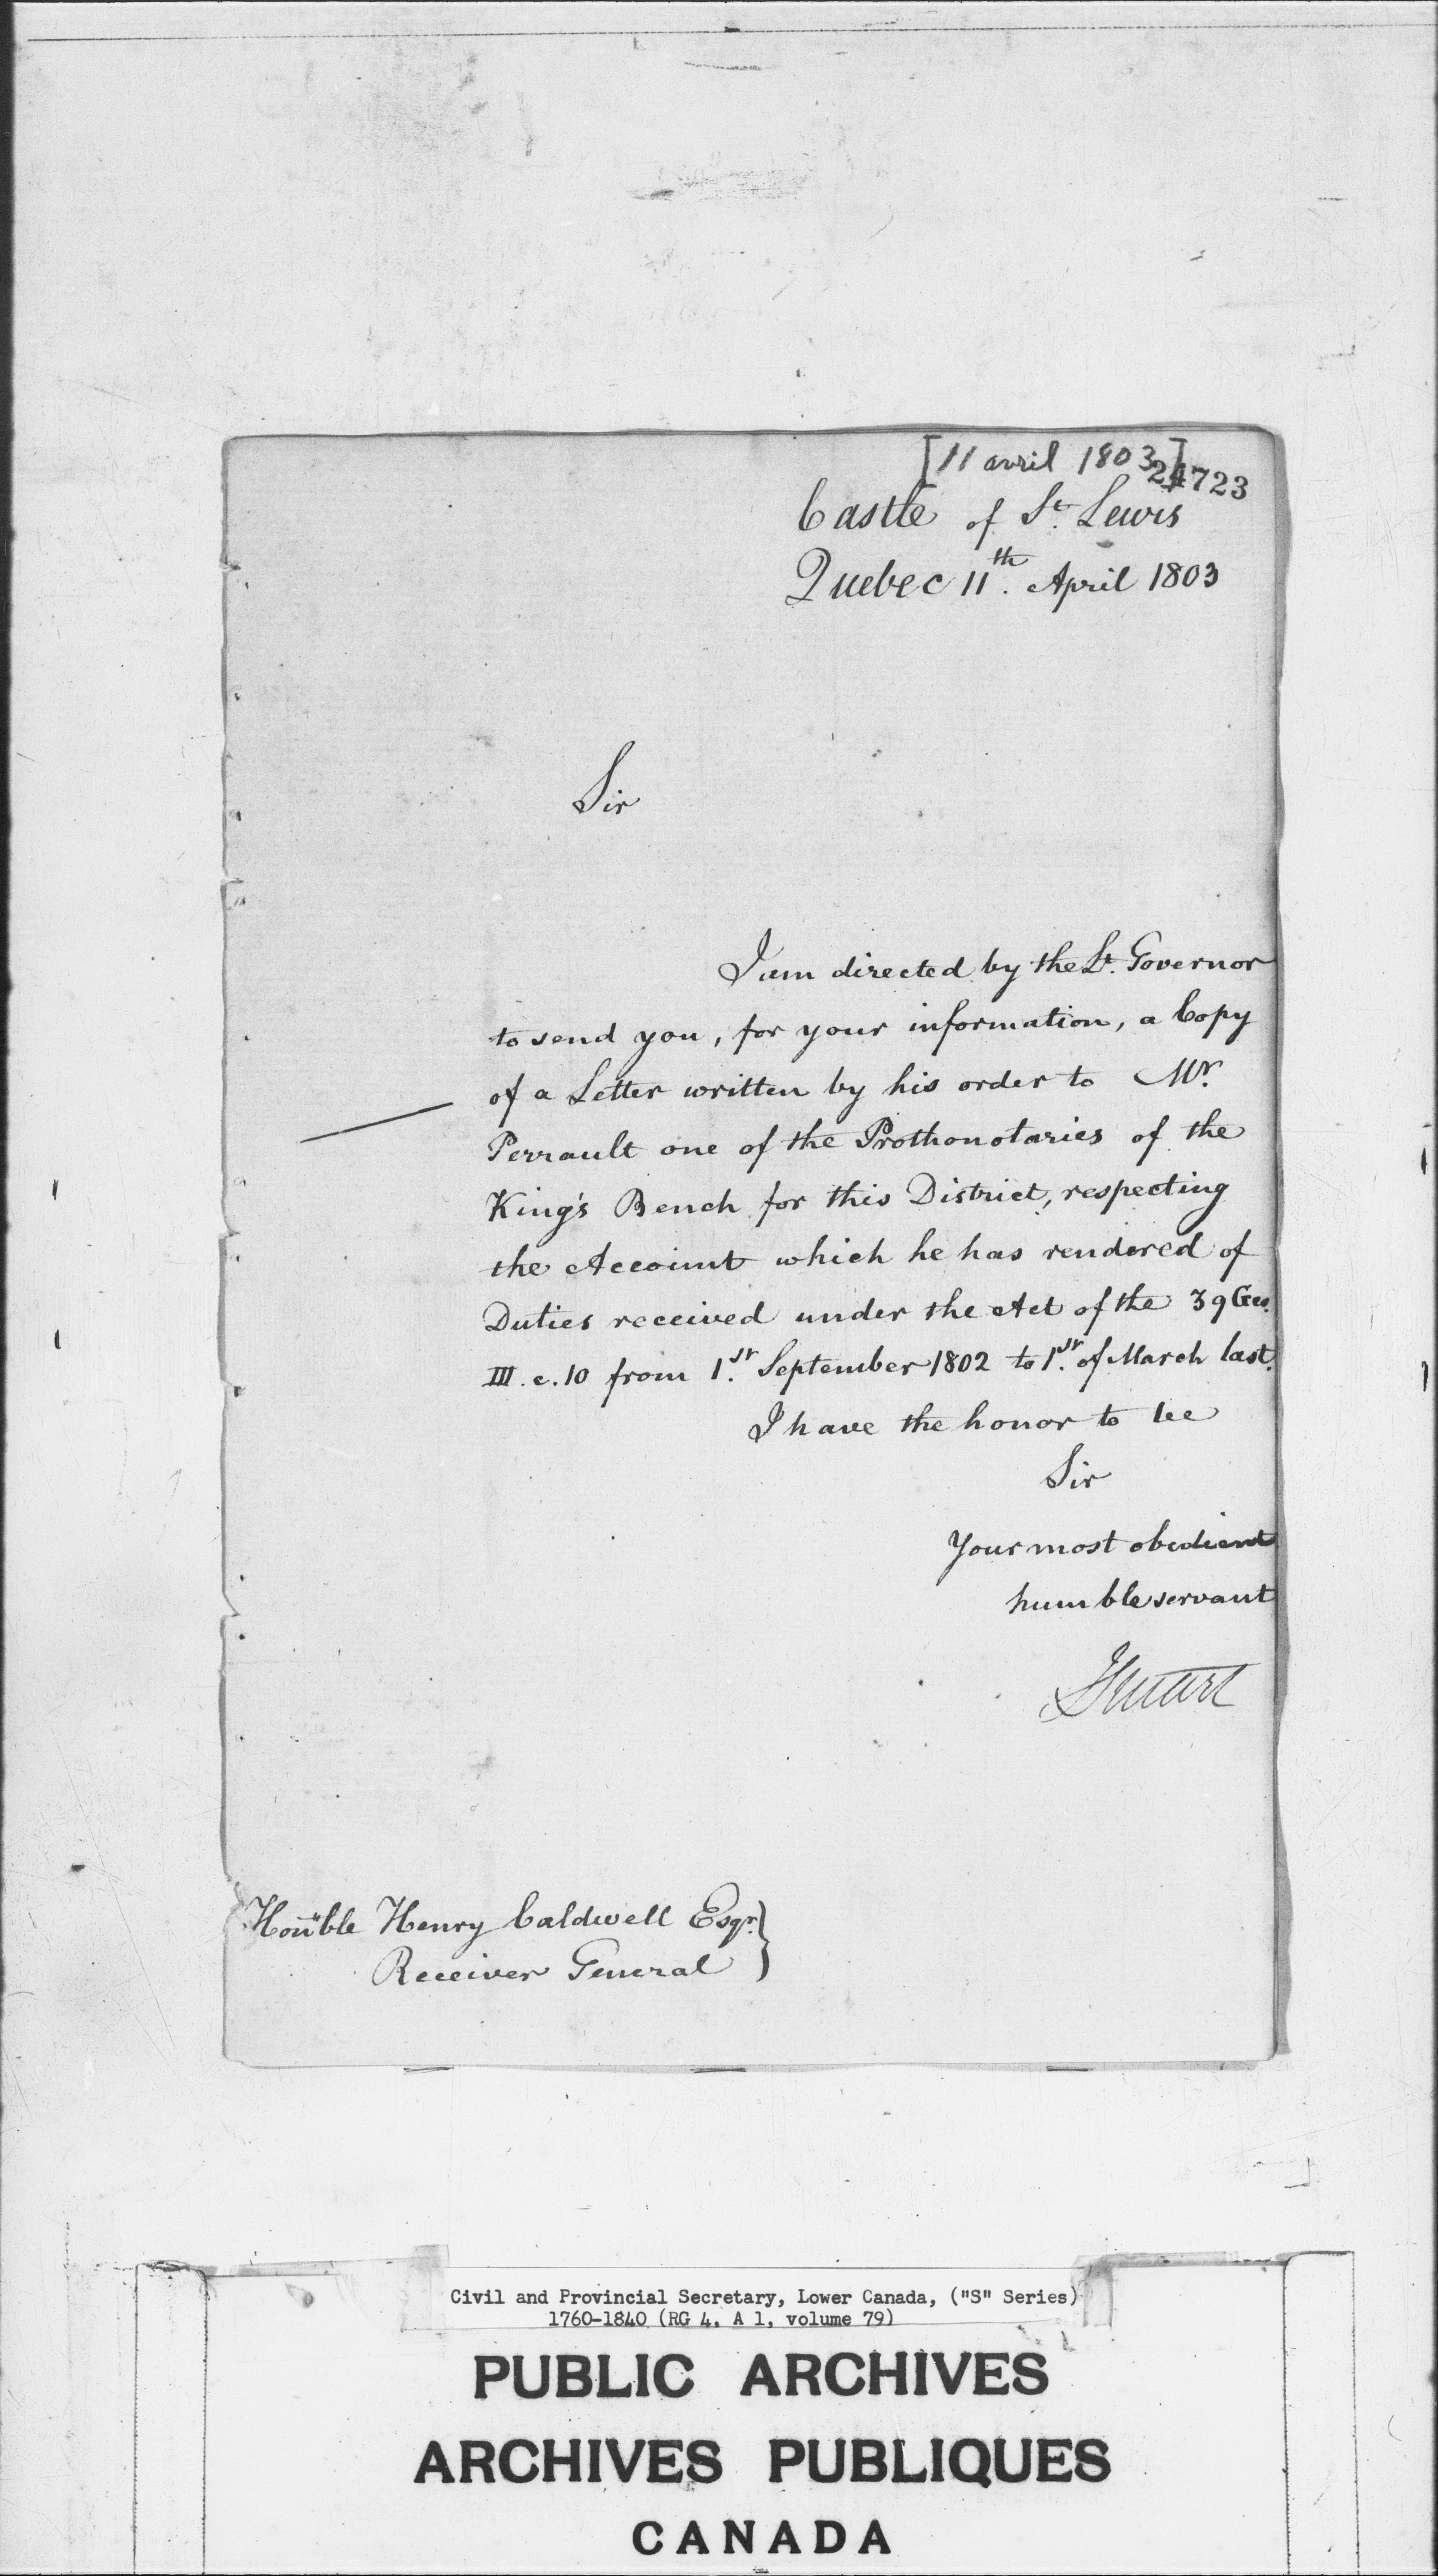 [11 avril 1803]
24723
Castle of St. Lewis
Quebec 11th. April 1803
Sir
I am directed by the Lt. Governor
to send you, for your information, a Copy
of a Letter written by his order to Mr.
Perrault one of the Prothonotaries of the
King's Bench for this District, respecting
the Account which he has rendered of
Duties received under the Act of the 39 Geo.
III. c. 10 from 1.st September 1802 to 1.st of March last.
I have the honor to be
Sir
Your most obedient
humble servant
Honble Henry Caldwell Esqr. }
Receiver General
Civil and Provincial Secretary, Lower Canada, ("S" Series)
1760-1840 (RG 4, A 1, volume 79)
PUBLIC ARCHIVES
ARCHIVES PUBLIQUES
CANADA